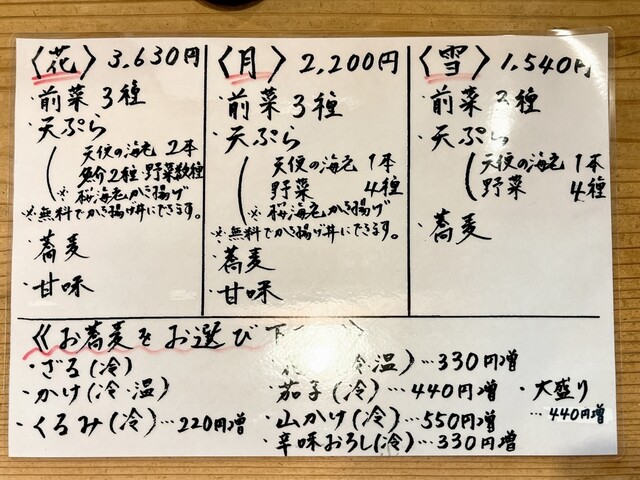 〈花〉3,630円
・前菜3種
・天ぷら
天使の海老 2本
魚介2種・野菜数種
※桜海老かき揚げ
※無料でかき揚げ丼にできます。
・蕎麦
・甘味
〈月〉2,200円
・前菜3種
・天ぷら
天使の海老 1本
野菜 4種
※桜海老かき揚げ
※無料でかき揚げ丼にできます。
・蕎麦
・甘味
〈雪〉1,540円
・前菜3種
・天ぷら
天使の海老 1本
野菜 4種
・蕎麦
《お蕎麦をお選び下 》
・ざる(冷)
・かけ(冷・温)
・くるみ(冷)…220円増
(冷・温)…330円増
・茄子(冷)…440円増
・山かけ(冷)…550円増
・辛味おろし(冷)…330円増
・大盛り
…440円増